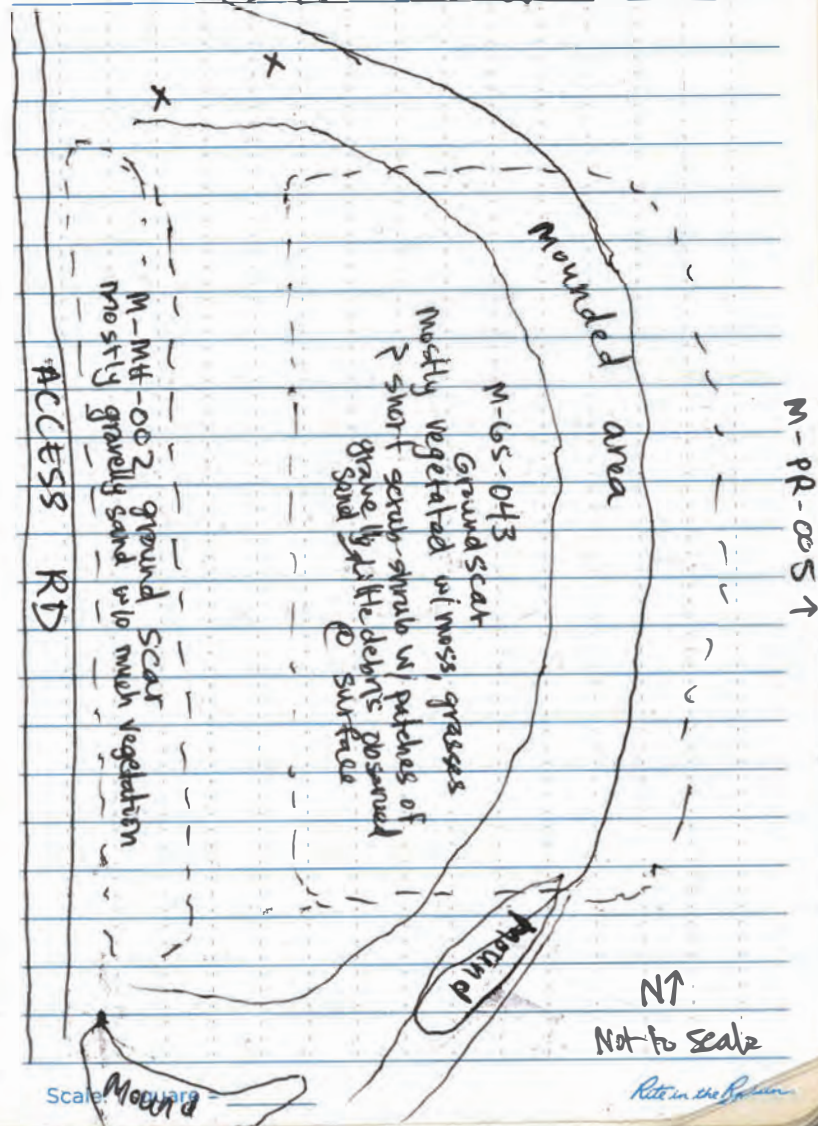 M-PR-005 ↑
Mounded area
M-GS-043
Ground scar
Mostly vegetated w/ moss, grasses
? short scrub-shrub w/ patches of
gravelly little debris observed
sand @ surface
M-MH-002 ground scar
mostly gravelly sand w/o much vegetation
ACCESS RD
Mound
N↑
Not to scale
Mound
Scale: 1 square =
Rite in the Rain
X
X